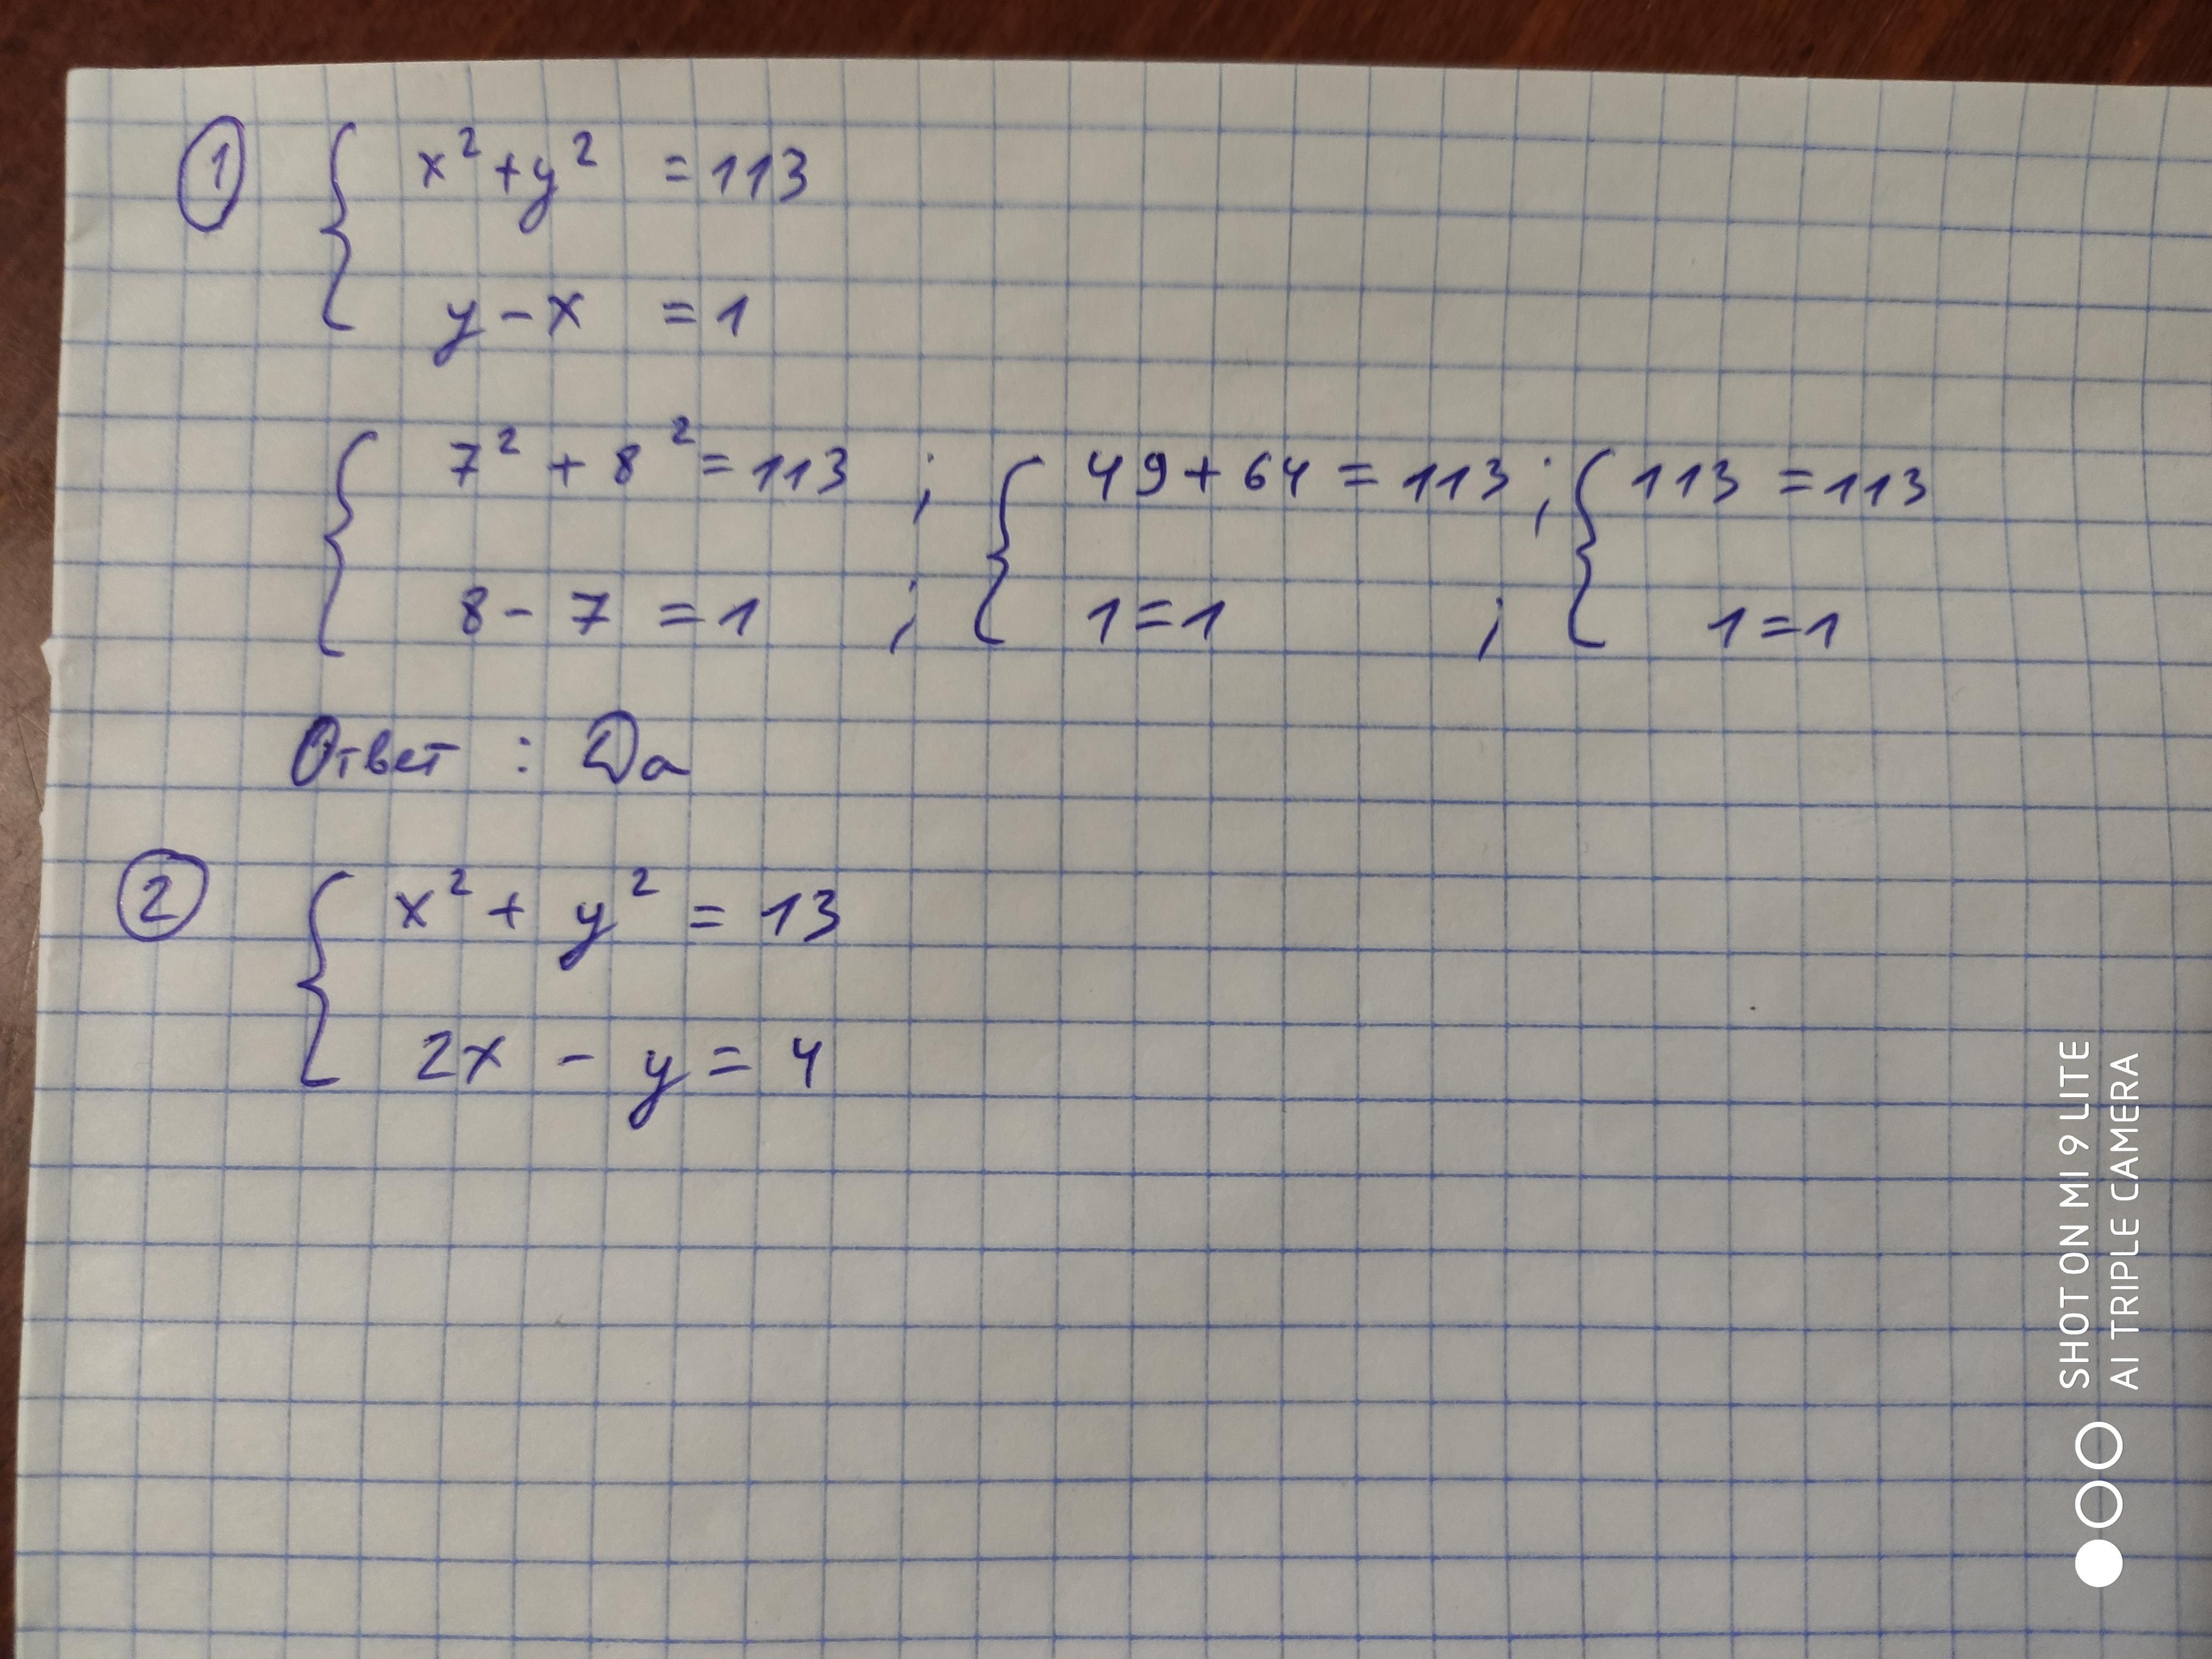 1 { x² + y² = 113
y - x = 1
{ 7² + 8² = 113 ; { 49 + 64 = 113 ; { 113 = 113
8 - 7 = 1 ; 1 = 1 ; 1 = 1
Ответ : Да
2 { x² + y² = 13
2x - y = 4
SHOT ON MI 9 LITE
AI TRIPLE CAMERA